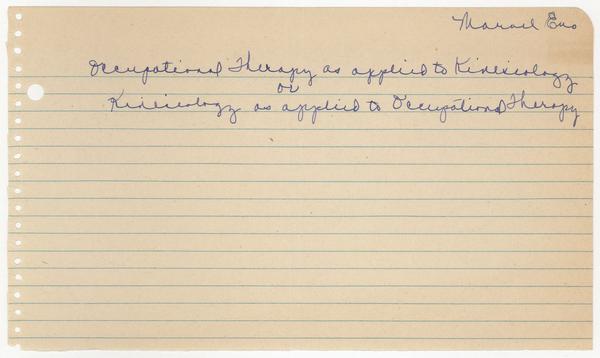 Occupational Therapy as applied to Kinesiology
or
Kinesiology as applied to Occupational Therapy